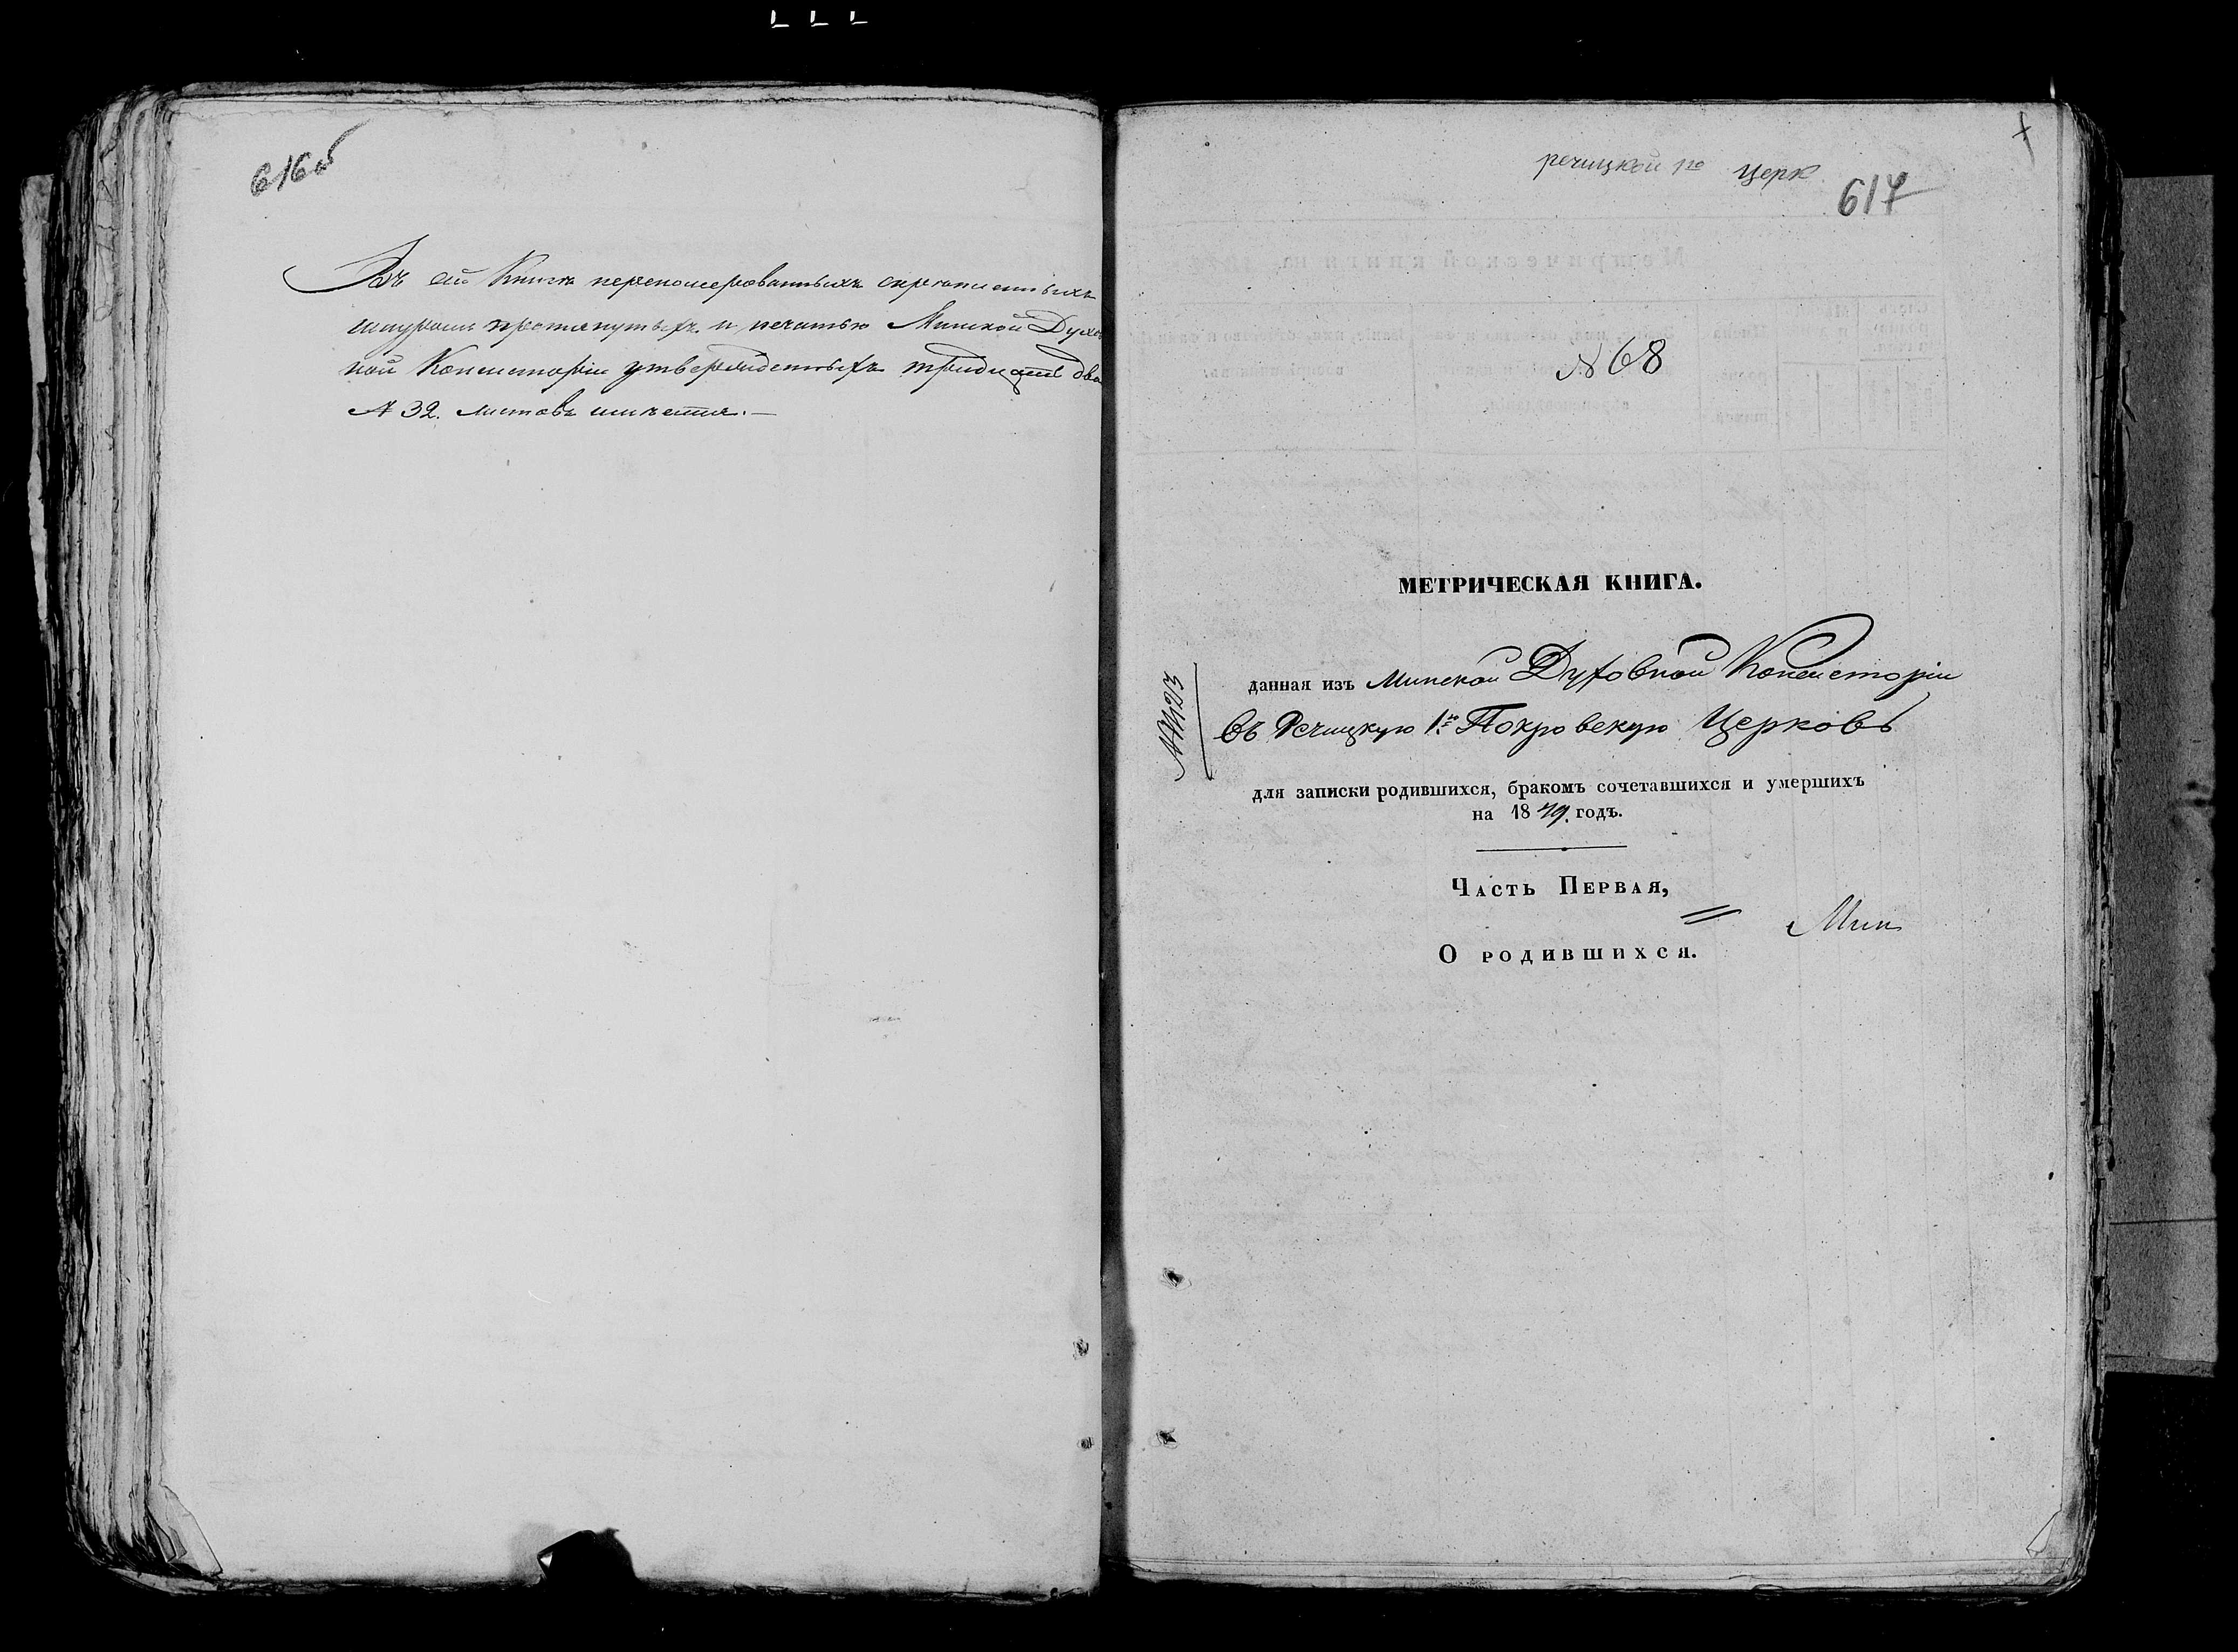 616об
Въ сей Книгѣ перенумерованныхъ скрѣпленныхъ
шнуромъ протянутыхъ и печатью Минской Духов
ной Консисторіи утвержденныхъ тридцать два
№ 32. листовъ имѣется. —
+
речицкой 1й церк
617
№ 68
МЕТРИЧЕСКАЯ КНИГА.
данная изъ Минской Духовной Консисторіи
въ Речицкую 1ю Покровскую Церковь
для записки родившихся, бракомъ сочетавшихся и умершихъ
на 1849. годъ.
Часть Первая,
Мин
О родившихся.